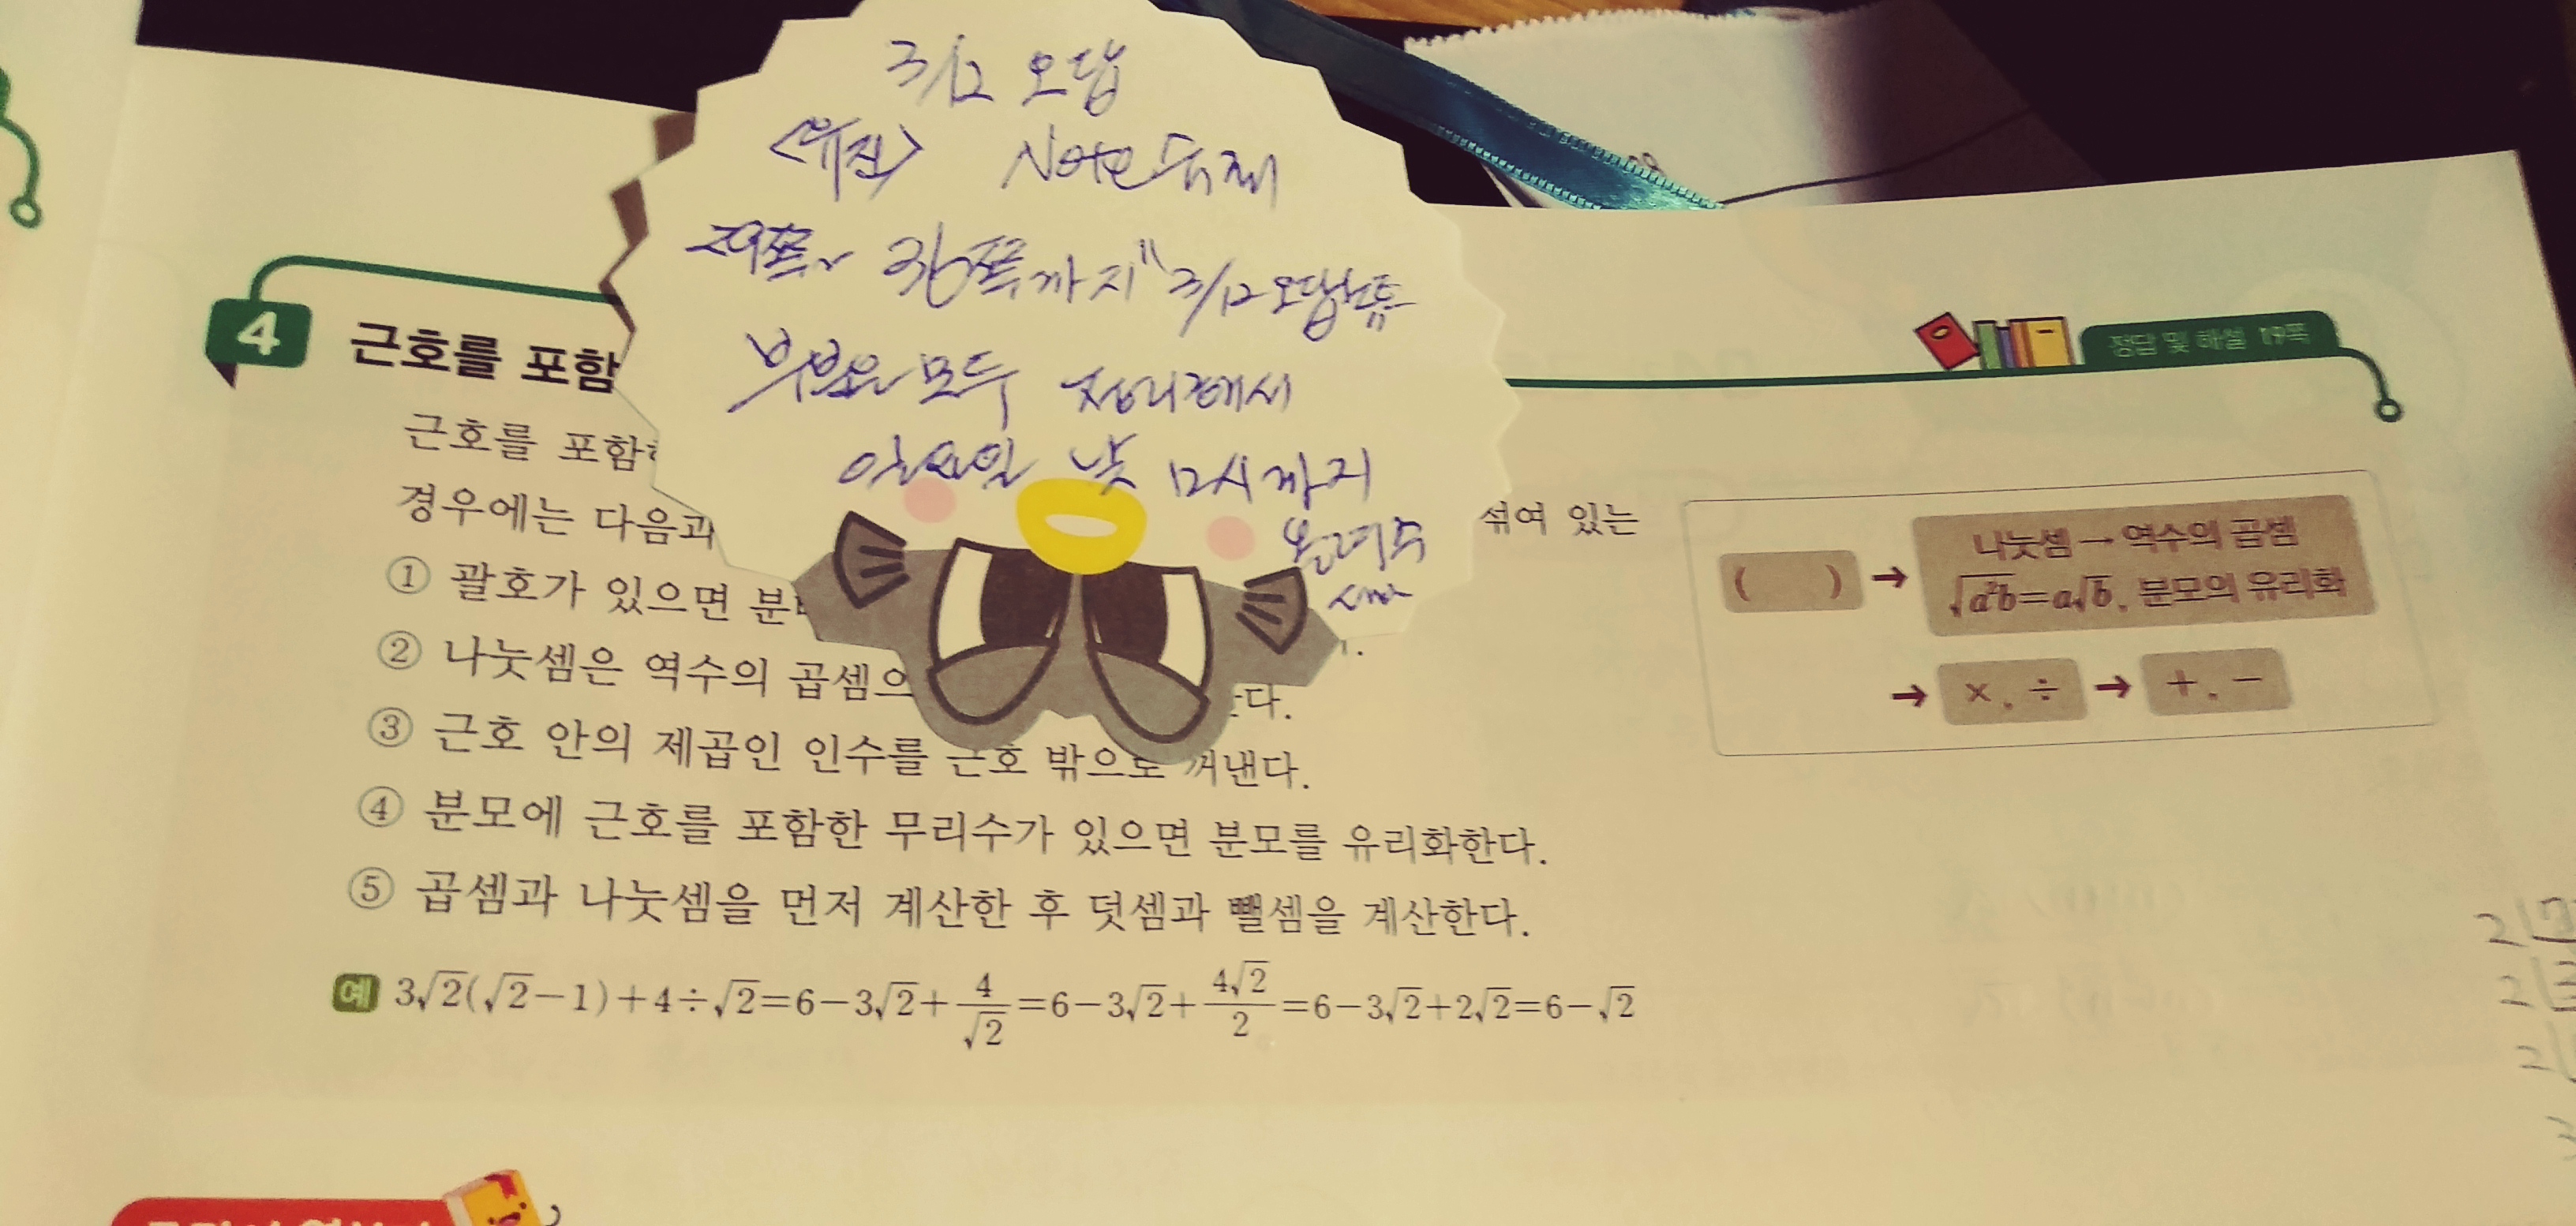 3/12 오답
<유진> Note 숙제
36쪽까지 "3/12 오답노트"
부분은 모두 정리해서
일요일 낮 12시까지
올려주
4 근호를 포함
정답 및 해설 19쪽
근호를 포함
경우에는 다음과 섞여 있는
① 괄호가 있으면 분
② 나눗셈은 역수의 곱셈으 다.
③ 근호 안의 제곱인 인수를 근호 밖으로 꺼낸다.
④ 분모에 근호를 포함한 무리수가 있으면 분모를 유리화한다.
⑤ 곱셈과 나눗셈을 먼저 계산한 후 덧셈과 뺄셈을 계산한다.
예 3√2(√2−1)+4÷√2=6−3√2+4/√2=6−3√2+4√2/2=6−3√2+2√2=6−√2
( ) → 나눗셈 → 역수의 곱셈
√a²b=a√b, 분모의 유리화
→ ×, ÷ → +, −
2
2
2